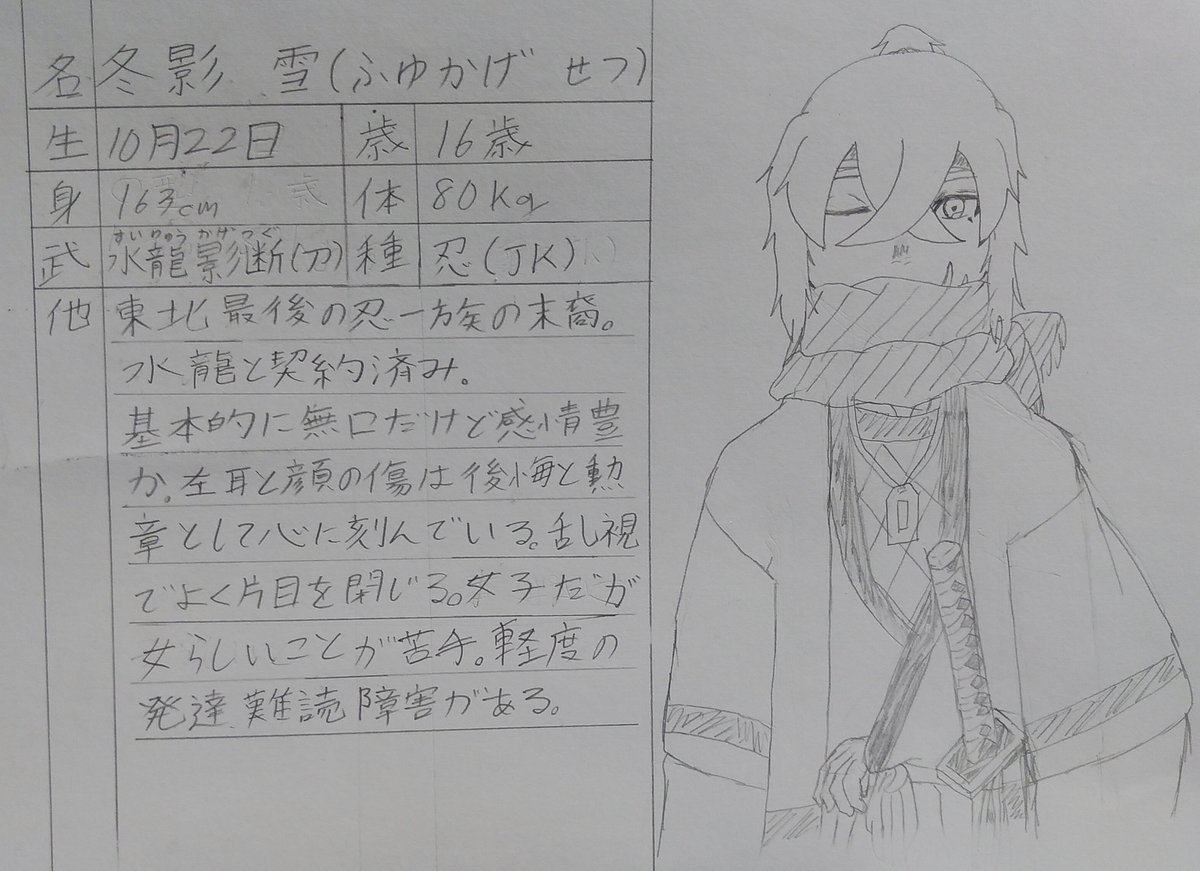 名 冬影 雪(ふゆかげ せつ)
生 10月22日 歳 16歳
身 163cm 体 80Kg
すいりゅうかげつぐ
武 水龍影断(刀) 種 忍(JK)
他 東北最後の忍一族の末裔。
水龍と契約済み。
基本的に無口だけど感情豊
か。左耳と顔の傷は後悔と勲
章として心に刻んでいる。乱視
でよく片目を閉じる。女子だが
女らしいことが苦手。軽度の
発達難読障害がある。